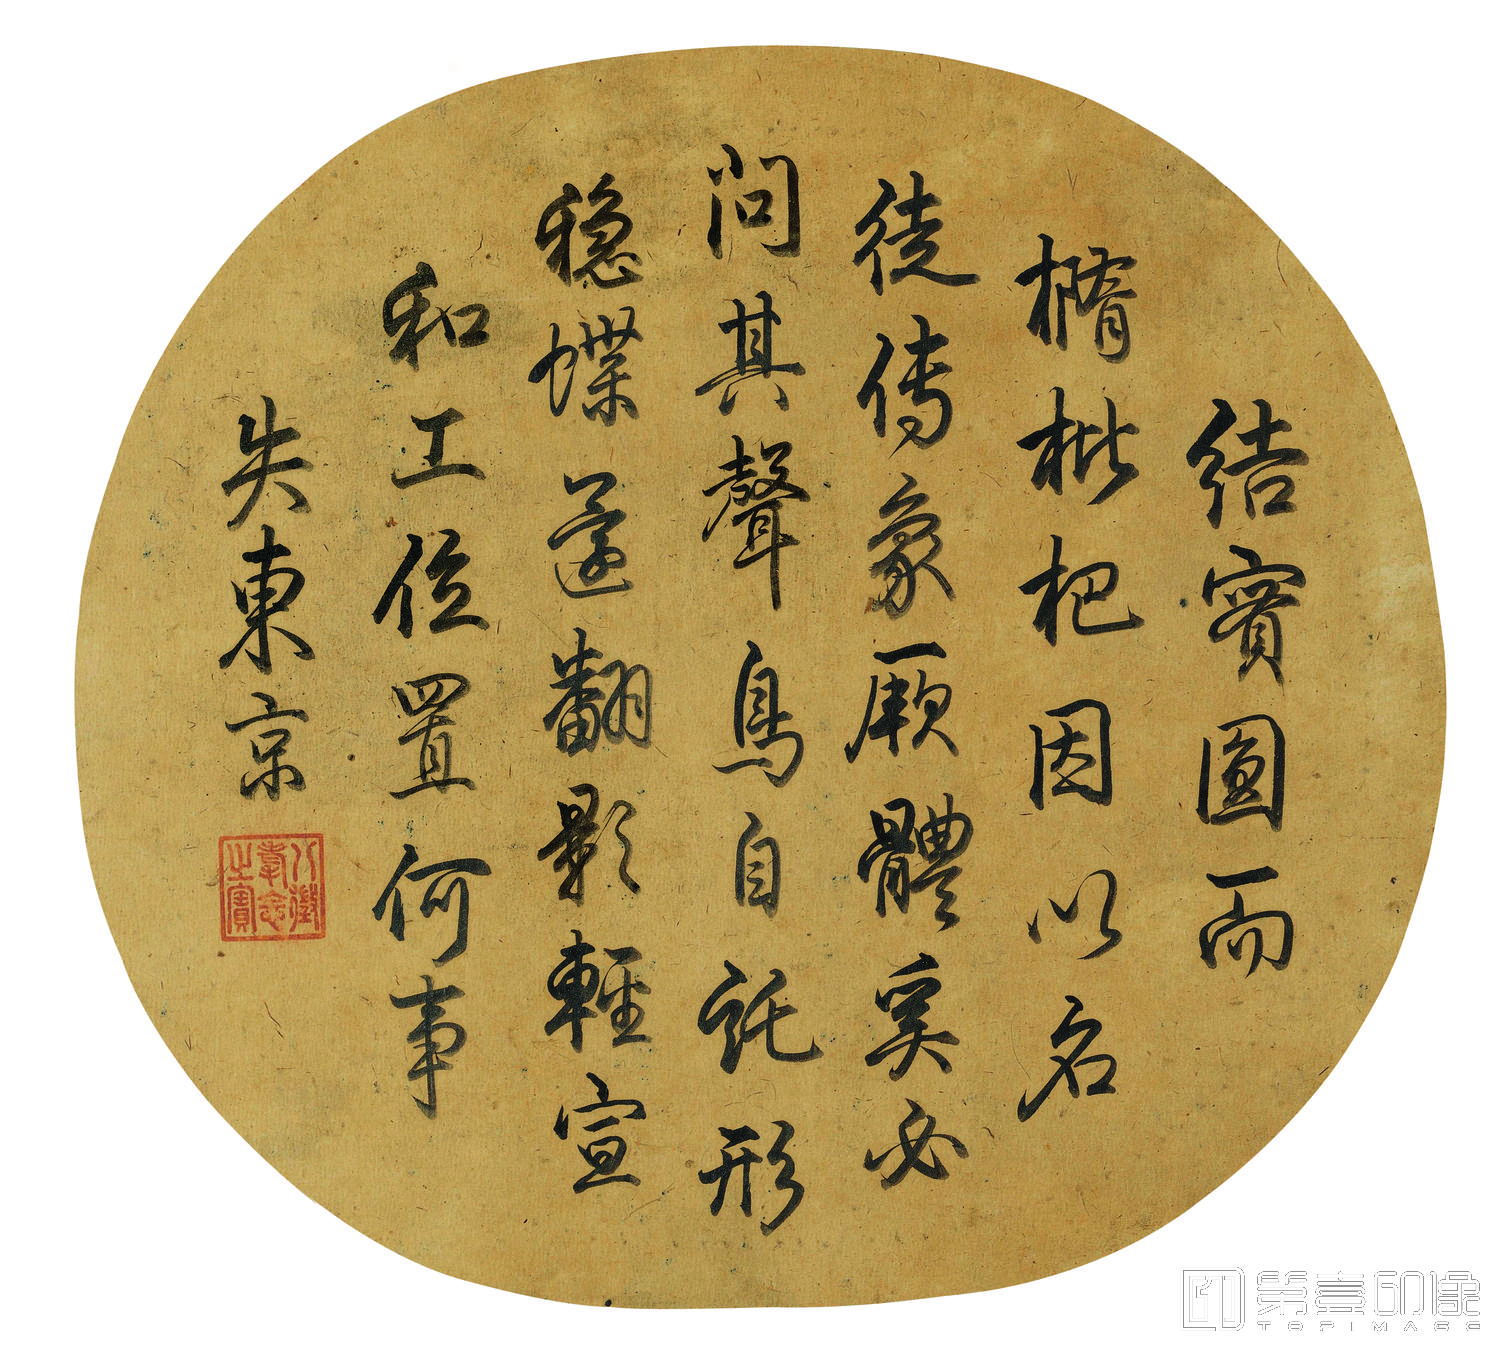 結實圓而
橢枇杷因以名
徒傳象厥體奚必
問其聲鳥自託形
穩蝶還翻影輕宣
和工位置何事
失東京
八徵耄念之寶
第壹印像
TOPIMAGE